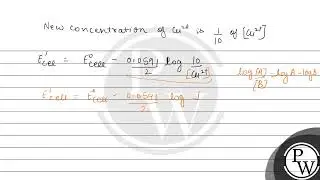 New concentration of Cu²⁺ is 1/10 of [Cu²⁺]
E'cell = E°cell - 0.0591/2 log 10/[Cu²⁺]
log [A]/[B] - log A - log B
E'cell = E°cell - 0.0591/2 - log
P
W